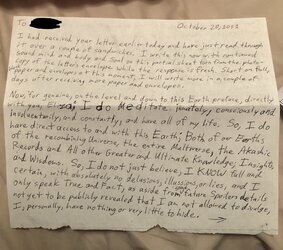 To
October 29, 2021
I had received your letter earlier today and have just read through
it over a couple of sandwiches. I write this now with continued
Sound mind and body and Soul on this partial sheet torn from the photo-
copy of the letter's envelope while the response is fresh. Short on fully,
paper and envelopes at this moment, I will write more in a couple of
days after receiving more paper and envelopes.
Now, for genuine, on the level and down to this Earth preface, directly
with you, I do Meditate, innately, consciously and
involuntarily, and constantly, and have all of my life. So, I do
have direct access to and with this Earth, Both of our Earths
of the recombining Universe, the entire Multiverse, the Akashic
Records and All other Greater and Ultimate Knowledge, Insights,
and Wisdom. So, I do not just believe, I KNOW full and
certain, with absolutely no delusions, illusions, or lies, and I
only speak True and Fact, as aside from some future Spoilers details
not yet to be publicly revealed that I am not allowed to divulge,
I, personally, have nothing or very little to hide. →